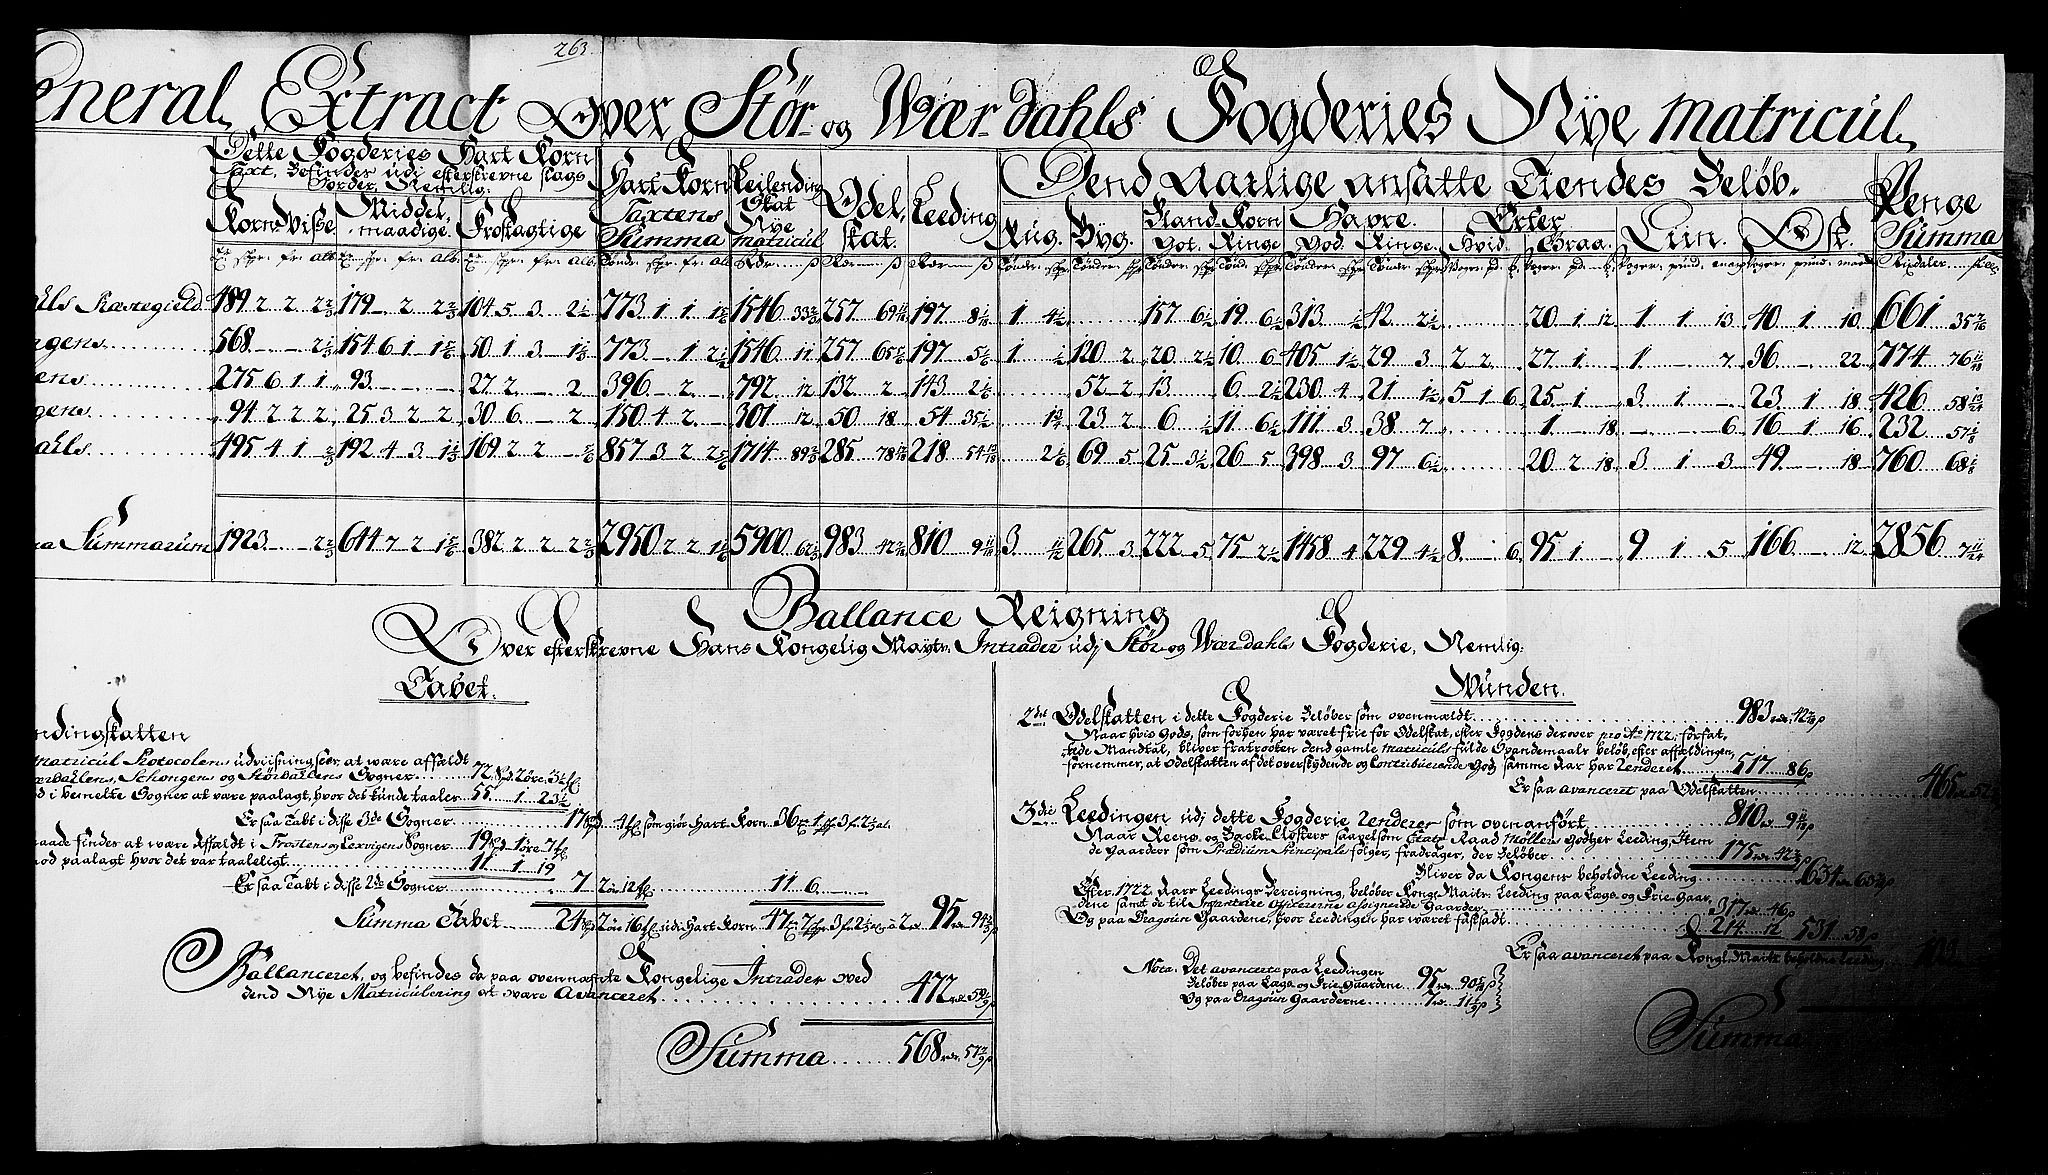 263
eneral Extract Over Stør og Wærdahls Fogderies Nye Matricul
Dette Fogderies Hart Korn
Taxt, befindes udi efterskrevne slags
Jorder, Nemlig:
Korn Visse
Middelmaadige
Frostagtige
Hart Korn Taxtens Summa
Leilending Skat Nye matricul
Odel skat.
Leeding
Dend Aarlige ansatte Tiendes Beløb.
Rug. Byg. Bland Korn Havre. Erter Liin. Ost.
Got. Ringe God. Ringe. Hvid. Graa.
Penge Summa
ahls Præstegield 189 2 2 2 2/3 179 - 2 2 2/3 104 5 3 2 1/2 773 1 1 1 1/6 1546 33 2/3 257 69 197 8 1 4 1/2 157 6 1/2 19 6 1/2 313 1/2 42 2 1/2 20 1 12 1 1 13 40 1 10 661 35
ngens 568 - - 2 1/3 154 6 1 1 5/6 50 1 3 1 1/6 773 - 1 2 1/2 1546 11 257 65 5/6 197 5 1/6 1 1/2 120 2 20 2 1/2 10 6 405 1 1/2 29 3 2 2 27 1 1 - 7 36 - 22 774 76
ens 275 6 1 1 93 - - - 27 2 - 2 396 - 2 - 792 12 132 2 143 2 1/6 52 2 13 6 2 1/2 230 4 21 1 1/2 5 1 6 25 1 3 1 - 23 1 18 426 58
gens 94 2 2 2 25 3 2 2 30 6 - 2 150 4 2 - 301 12 50 18 54 35 1/2 23 2 6 1/2 11 6 1/2 111 3 38 7 1 - 18 - - 6 16 1 16 232 57
ahls 495 4 1 2/3 192 4 3 1 1/3 169 2 2 5/6 857 3 2 2 5/6 1714 89 2/3 285 78 218 54 2 1/6 69 5 25 3 1/2 26 5 398 3 97 6 1/2 20 2 18 3 1 3 49 - 18 760 68
a Summarum 1923 - - 2 2/3 644 7 2 1 5/6 382 2 2 2 2/3 2950 2 2 1 1/6 5900 62 2/3 983 42 810 9 3 1/2 265 3 222 5 75 2 1/2 1458 4 229 4 1/2 8 - 6 95 1 9 1 5 166 - 12 2856 7
Ballance Reigning
Over efterskrevne Hans Kongelig Mayts. Intrader udj Stør og Wærdahls Fogderie, Nemlig:
Tabet.
ndingskatten
matricul Protocolens udviisning seer, at være affældt
ærdahlens, Schongens og Størdahlens Sogner 72 2 øre 3 1/2
d i bemelte Sogner at være paalagt, hvor det kunde taaler 55 1 23 1/2
Er saa Tabt i disse 3de Sogner 17 som giør Hart Korn 36 1 3 2 1/2 al.
aade findes at være Affældt i Frostens og Lexvigens Sogner 19 1 øre 7
mod paalagt hvor det var taaleligt 11 1 19
Er saa Tabt i disse 2de Sogner 7 2 12 11 6
Summa Tabet 24 2 øre 16 udi Hart Korn 47 7 3 2 1/2 a 2 95 94 2/3
Ballanceret, og befindes da paa ovennæfnte Kongelige Intrader ved
dend Nye Matriculering at være Avanceret 472 59
Summa 568 57
Wunden.
2det Odelskatten i dette Fogderie beløber som ovenmældt 983 42
Naar hvis Gods, som forhen har været frie for Odelskat, efter Fogdens derover pro Ao 1722, forfat-
tede Mandtal, bliver fratrocken dend gamle matriculs fulde Spandemaals beløb, efter affældingen,
fornemmer, at Odelskatten af det overskydende og Contribuerende Gods samme Aar har Renderet 517 86
Er saa avanceret paa Odelskatten 465
3die Leedingen udj dette Fogderie Renderer som ovenanført 810 9
Naar Reens og Backe Closters saavelsom Etats Raad Möllens Godtzer Leeding, Item
de Gaarder som Prædium Principale følger, fradrages, der beløber 175 42
Bliver da Kongens beholdne Leeding 634 63
Efter 1722 Aars Leedings Bereigning, beløber Kongl. Maits. Leeding paa Læge og Frie Gaar,
dene samt de til Infanterie officererne assignerede Gaarder 317 46
Og paa Dragoun Gaardene, hvor Leedingen har været fastsadt 214 12 531 58
Er saa avanceret paa Kongl. Maits beholdne Leeding
Nota. Det avancerte paa Leedingen
Beløber paa Læge og Frie Gaardene 95 90
Og paa Dragoun Gaarderne 7 11
Summa